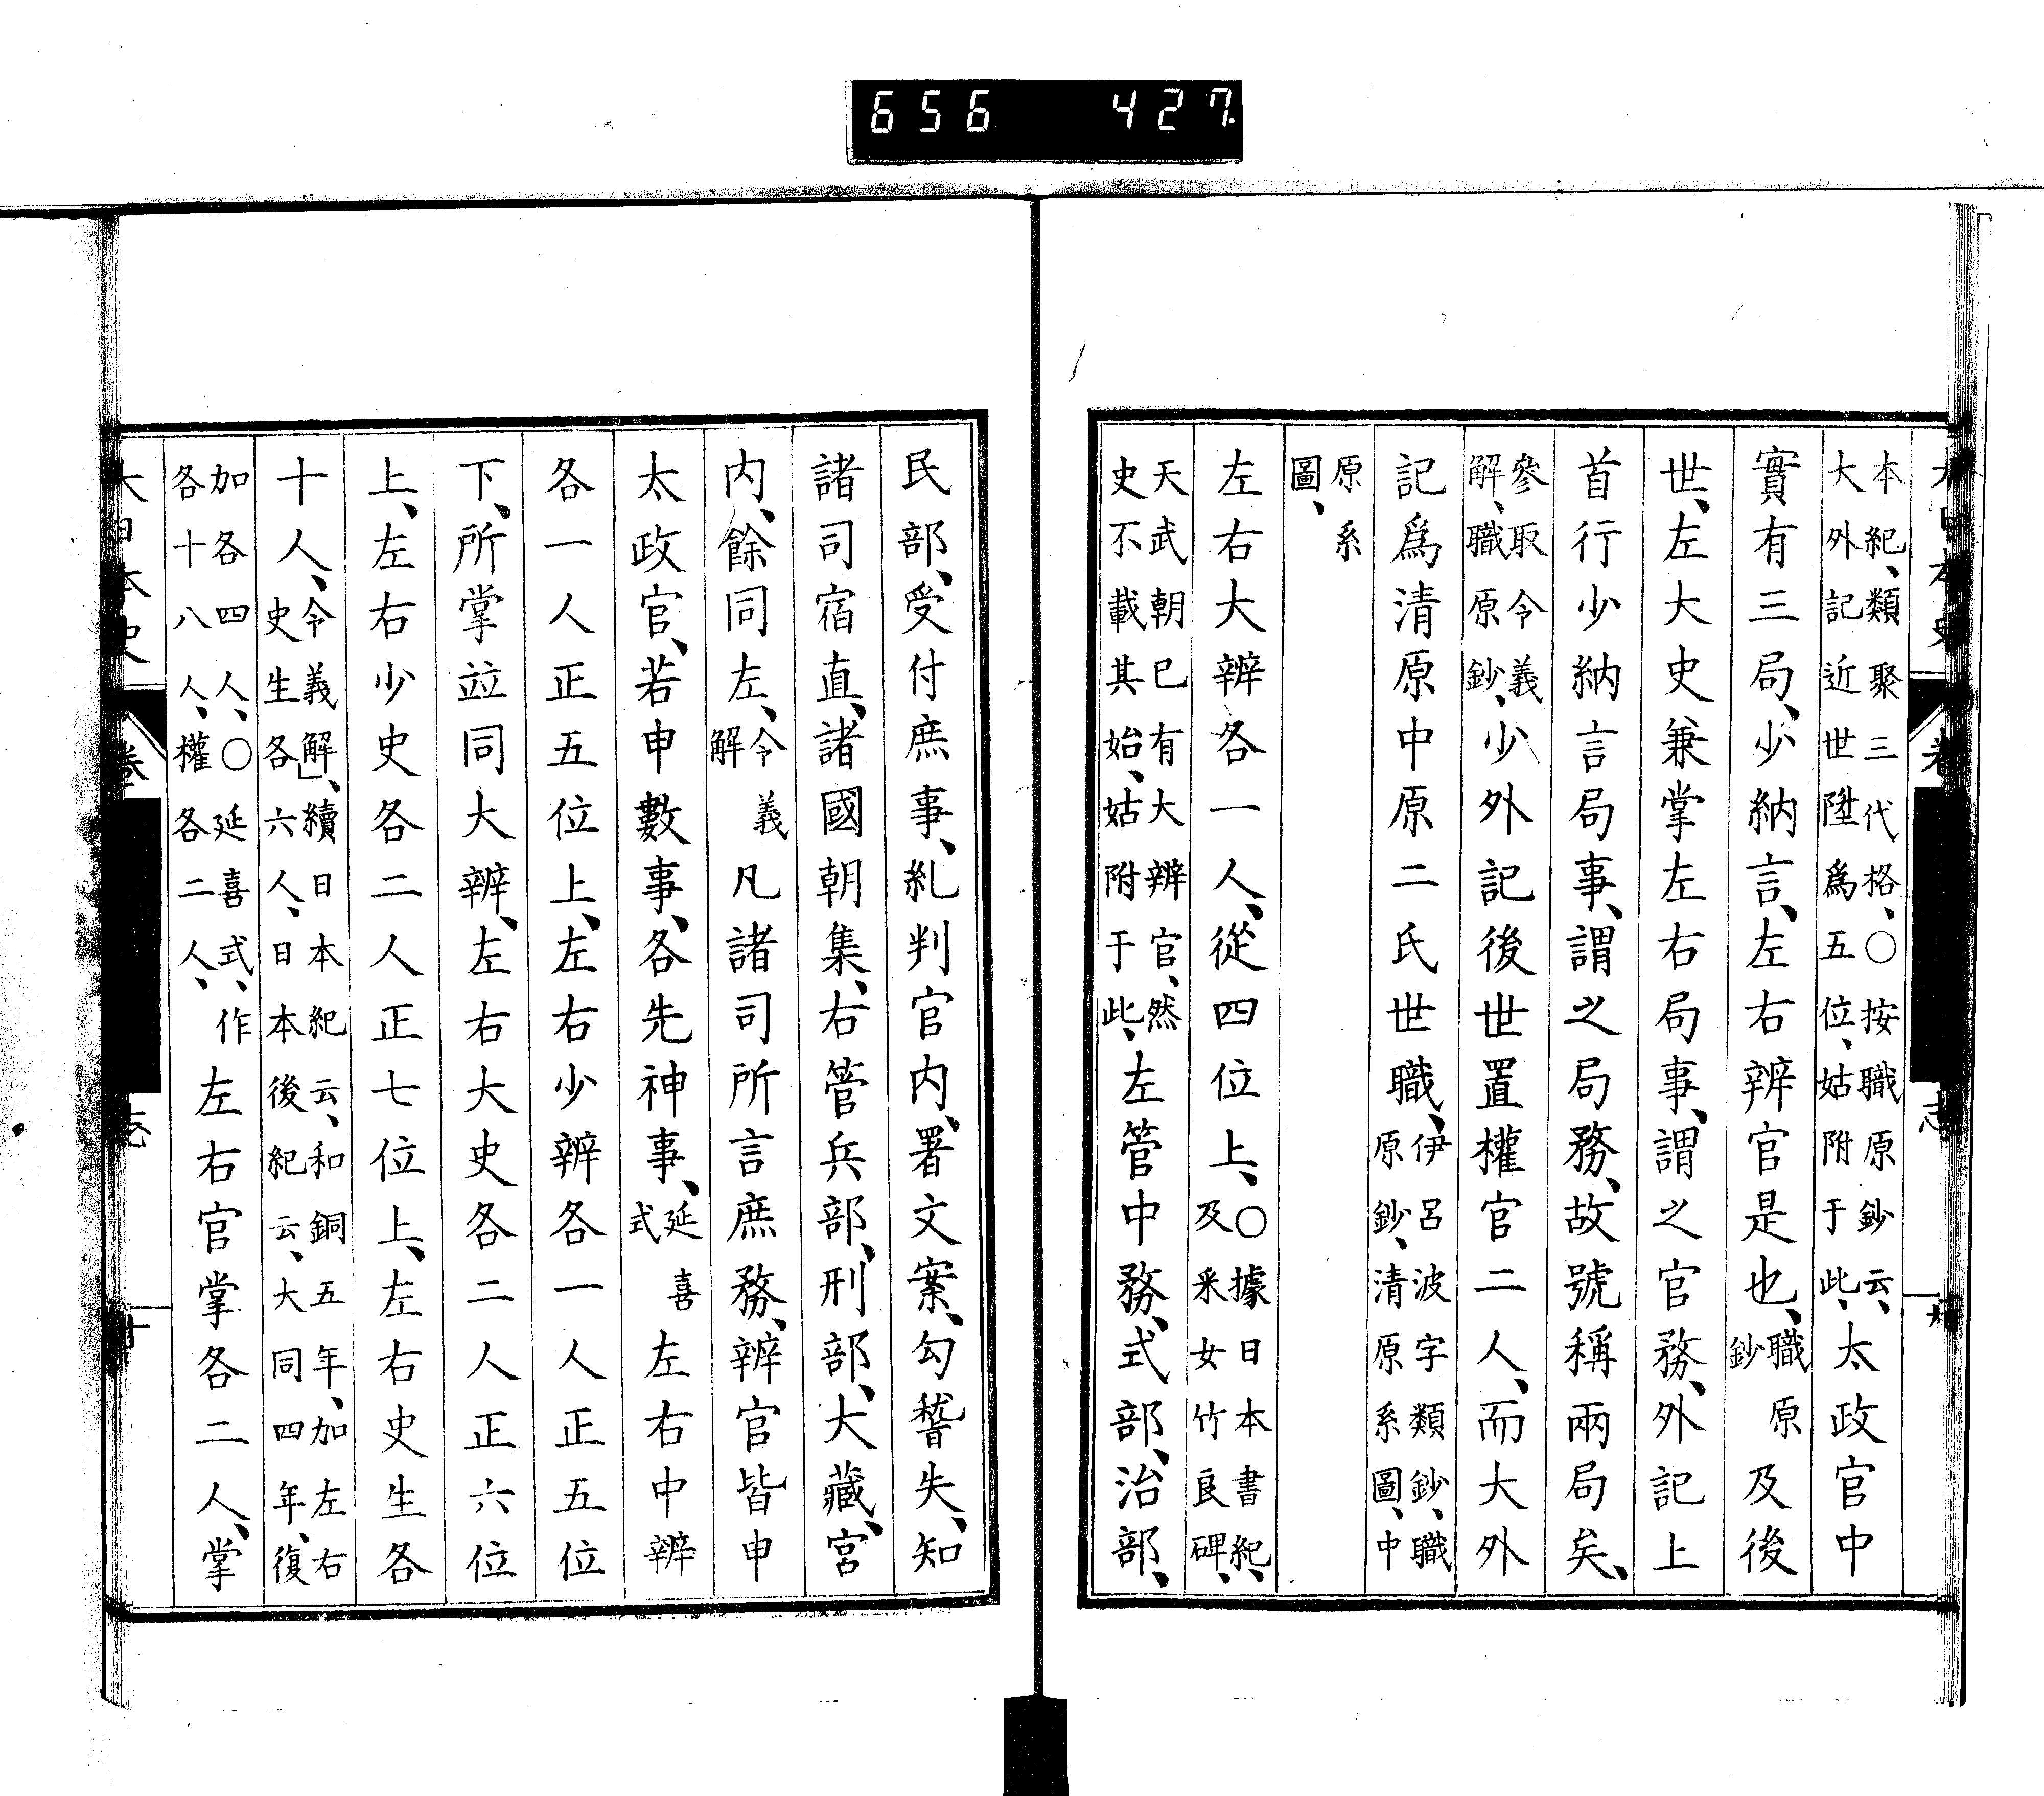 656 427
本紀、類聚三代格、〇按職原鈔云、
大外記近世陞爲五位、姑附于此、太政官中
實有三局、少納言、左右辨官是也、職原
鈔及後
世、左大史兼掌左右局事、謂之官務、外記上
首行少納言局事、謂之局務、故號稱兩局矣、
參取令義
解、職原鈔、少外記後世置權官二人、而大外
記爲清原中原二氏世職、伊呂波字類鈔、職
原鈔、清原系圖、中
原系
圖、
左右大辨各一人、從四位上、〇據日本書紀、
及釆女竹良碑、
天武朝已有大辨官、然
史不載其始、姑附于此、左管中務、式部、治部、
民部、受付庶事、糺判官内、署文案、勾稽失、知
諸司宿直、諸國朝集、右管兵部、刑部、大藏、宮
内、餘同左、令義
解凡諸司所言庶務、辨官皆申
太政官、若申數事、各先神事、延喜
式左右中辨
各一人正五位上、左右少辨各一人正五位
下、所掌竝同大辨、左右大史各二人正六位
上、左右少史各二人正七位上、左右史生各
十人、令義解」、續日本紀云、和銅五年、加左右
史生各六人、日本後紀云、大同四年、復
加各四人、〇延喜式、作
各十八人、權各二人、左右官掌各二人、掌
大日本史 卷 志